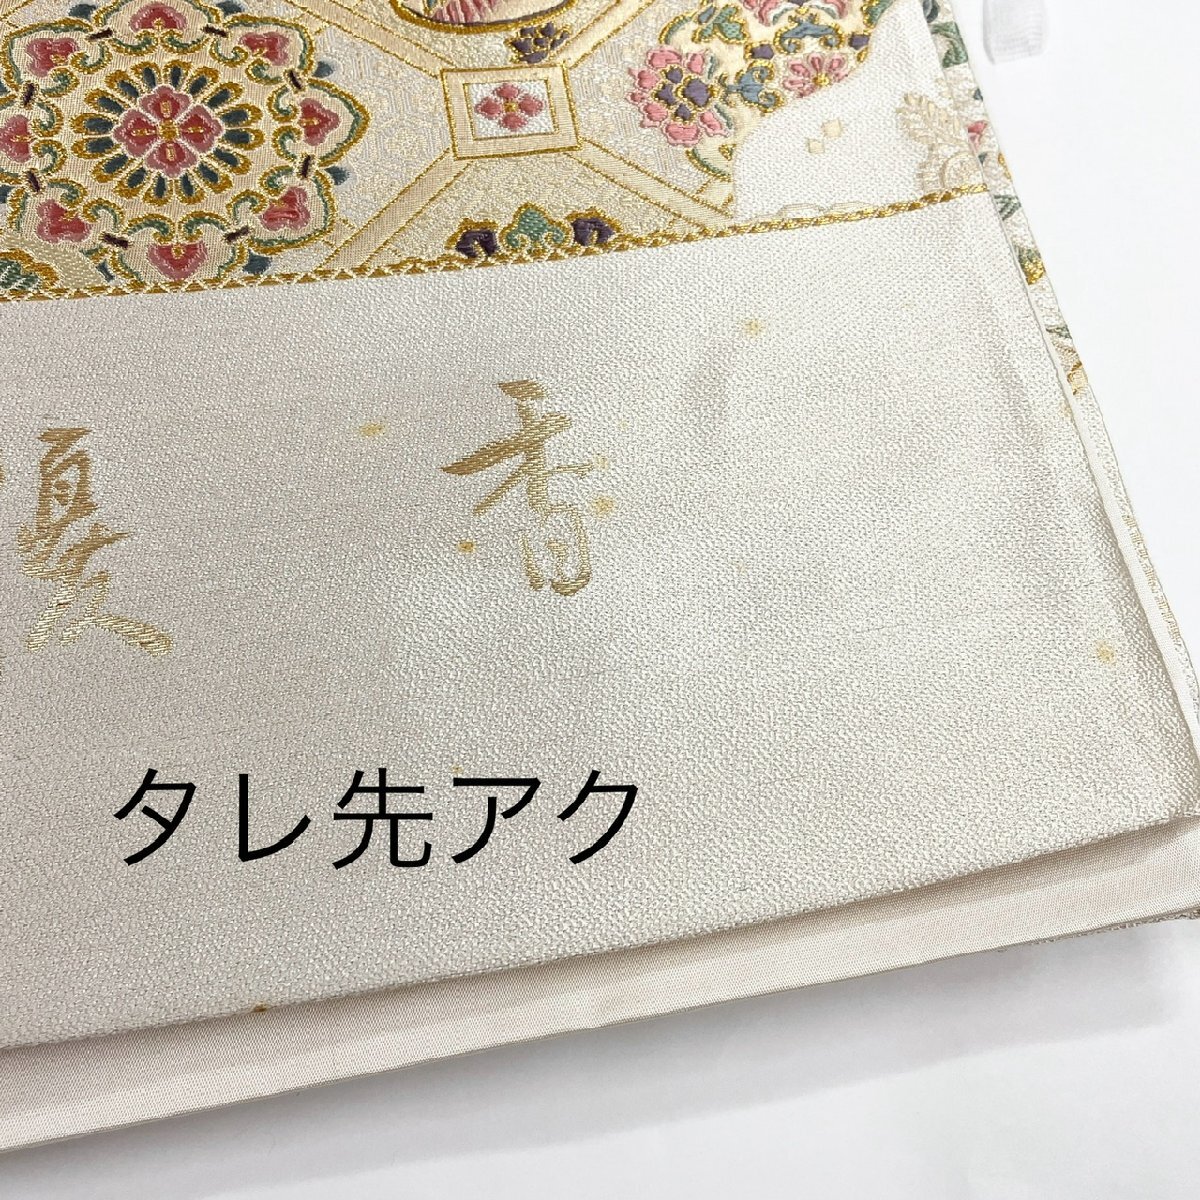 香
タレ先アク